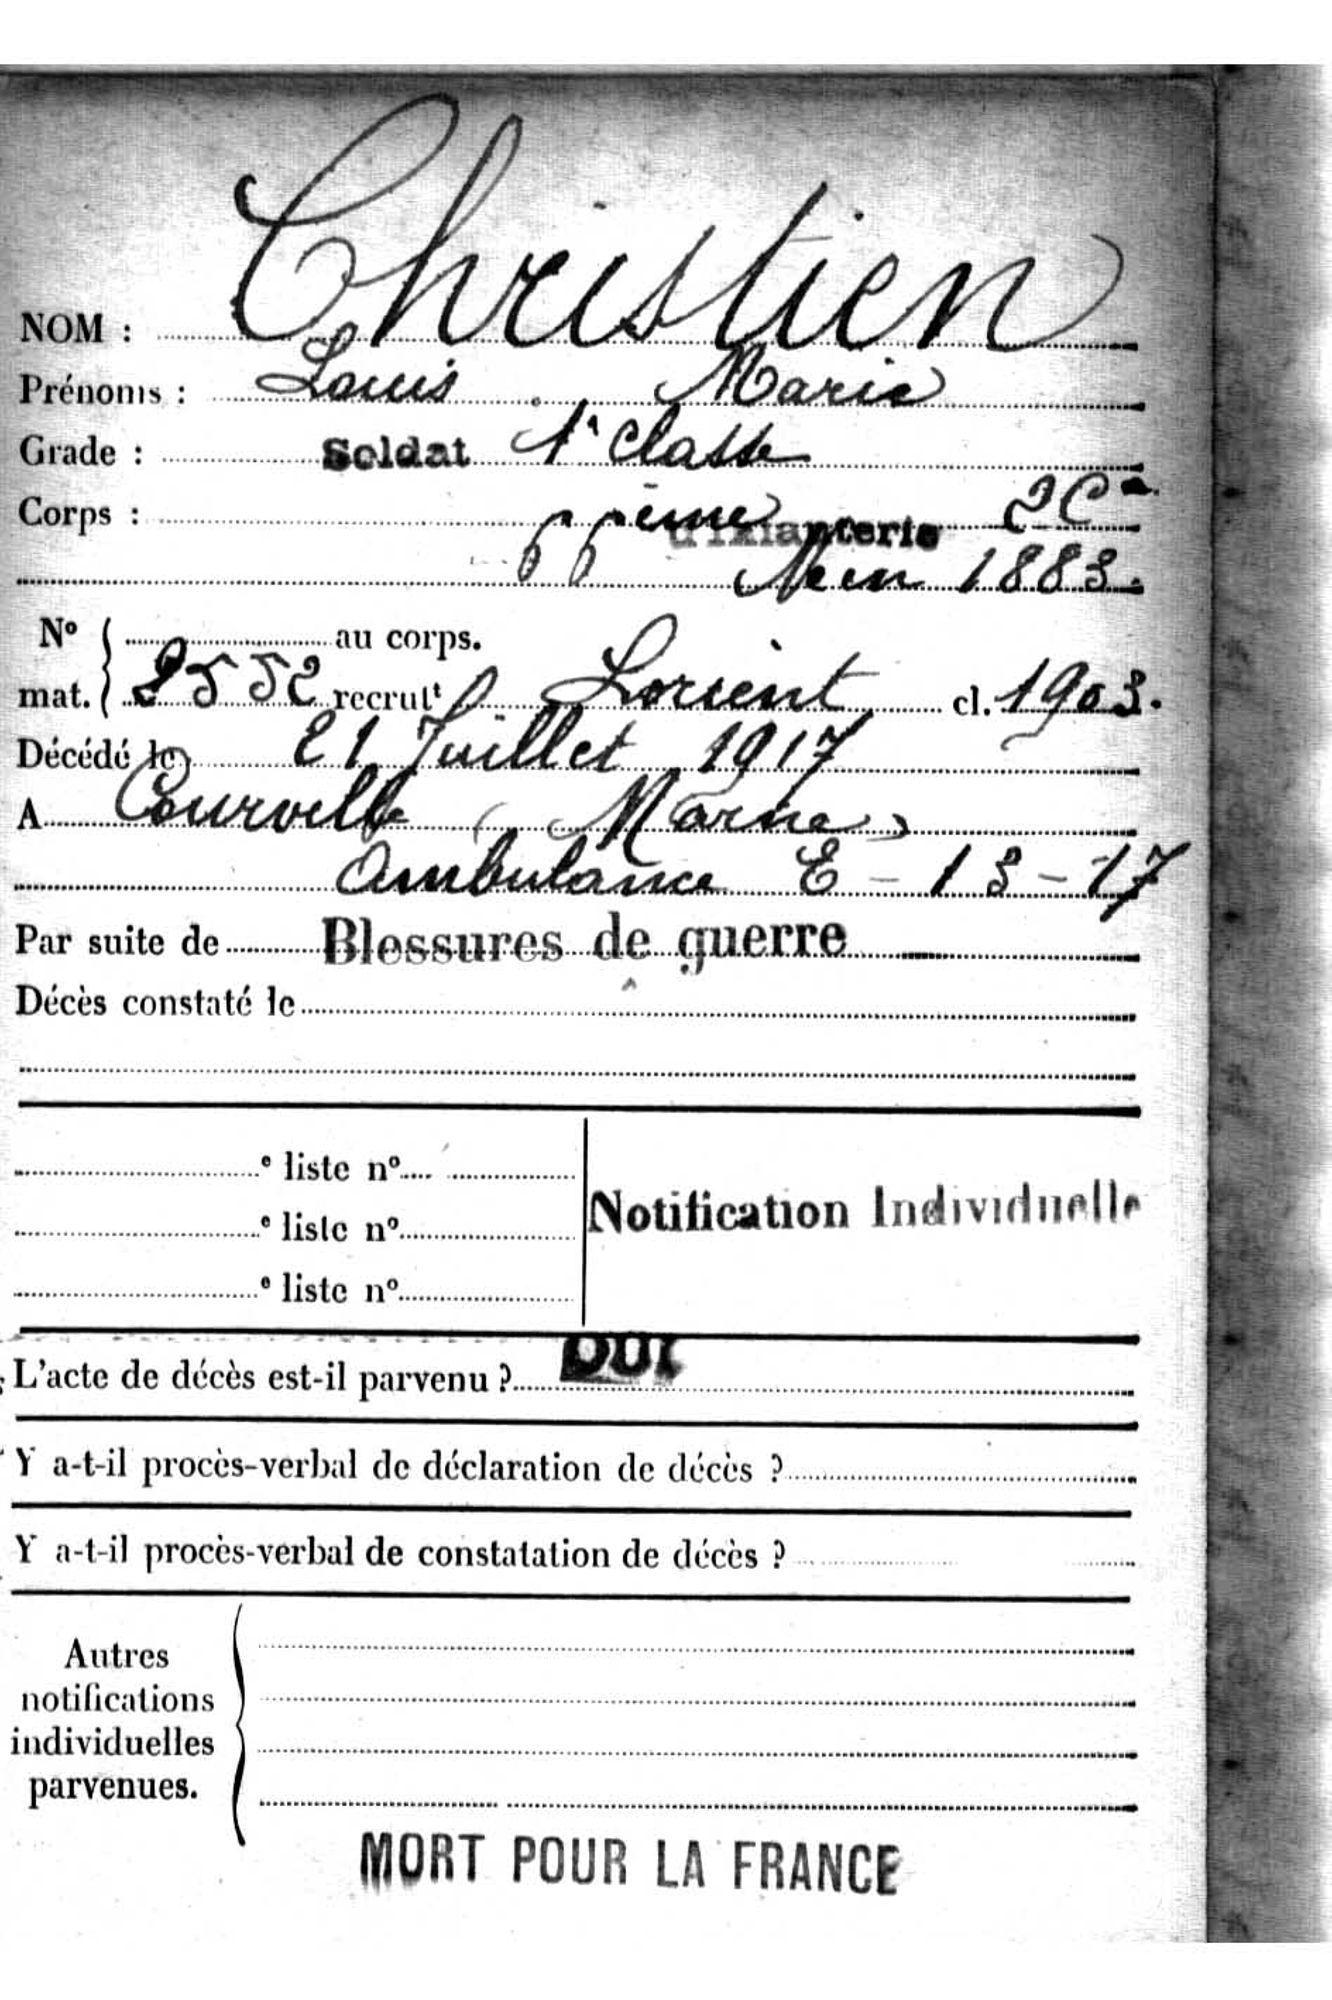 NOM : Christien
Prénoms : Louis Marie
Grade : Soldat 1e classe
Corps : 66 ème d'infanterie 2 Cie
Né en 1883.
No mat. { au corps.
2552 recrutt Lorient cl. 1903.
Décédé le 21 Juillet 1917
A Courville (Marne)
Ambulance E - 13 - 17
Par suite de Blessures de guerre
Décès constaté le
e liste no
e liste no
e liste no
Notification Individuelle
L'acte de décès est-il parvenu ? OUI
Y a-t-il procès-verbal de déclaration de décès ?
Y a-t-il procès-verbal de constatation de décès ?
Autres
notifications
individuelles
parvenues.
MORT POUR LA FRANCE